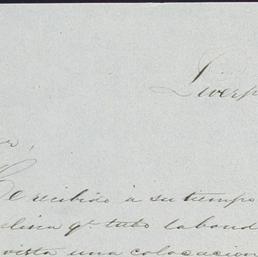 Liverp
r,
He recibido á su tiempo
q.e tubo la bond
vista una colocacion